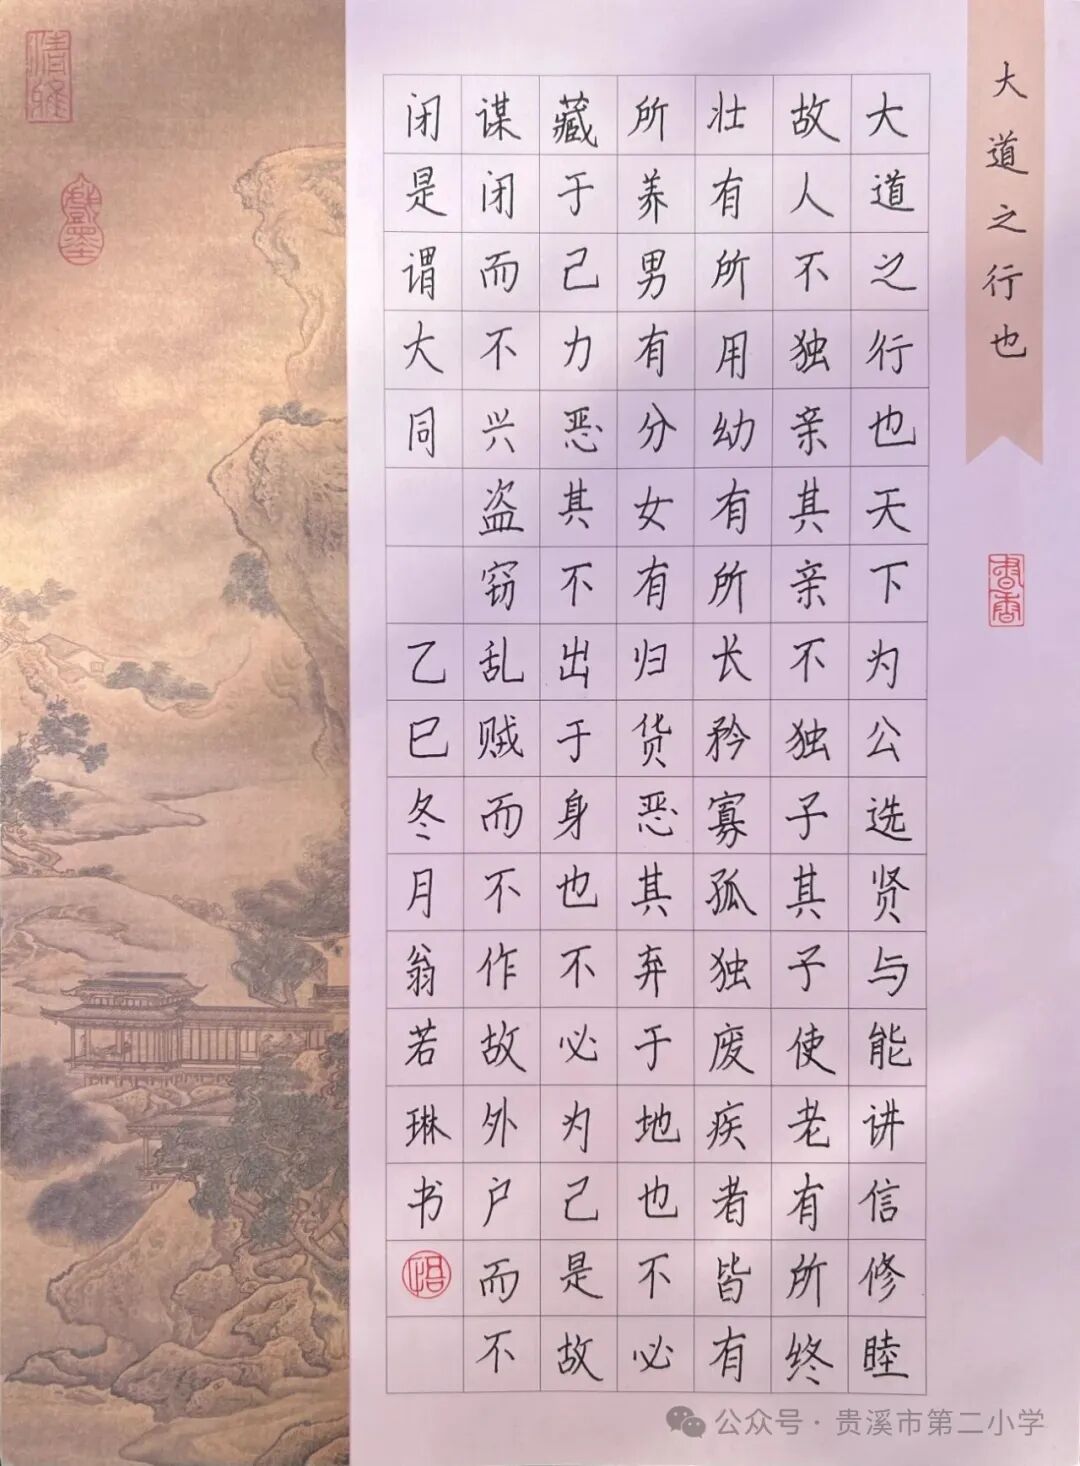 大道之行也
书香
大道之行也天下为公选贤与能讲信修睦
故人不独亲其亲不独子其子使老有所终
壮有所用幼有所长矜寡孤独废疾者皆有
所养男有分女有归货恶其弃于地也不必
藏于己力恶其不出于身也不必为己是故
谋闭而不兴盗窃乱贼而不作故外户而不
闭是谓大同 乙巳冬月翁若琳书
悟
清雅
公众号·贵溪市第二小学